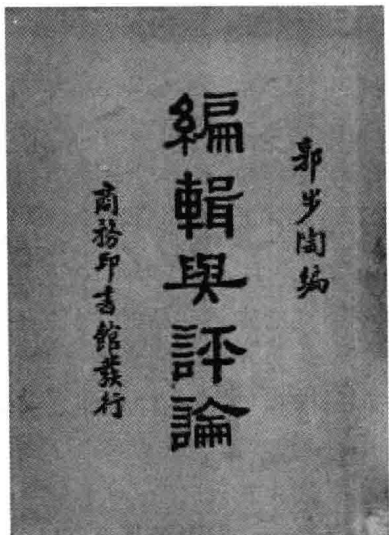 郭步陶編
編輯與評論
商務印書館發行